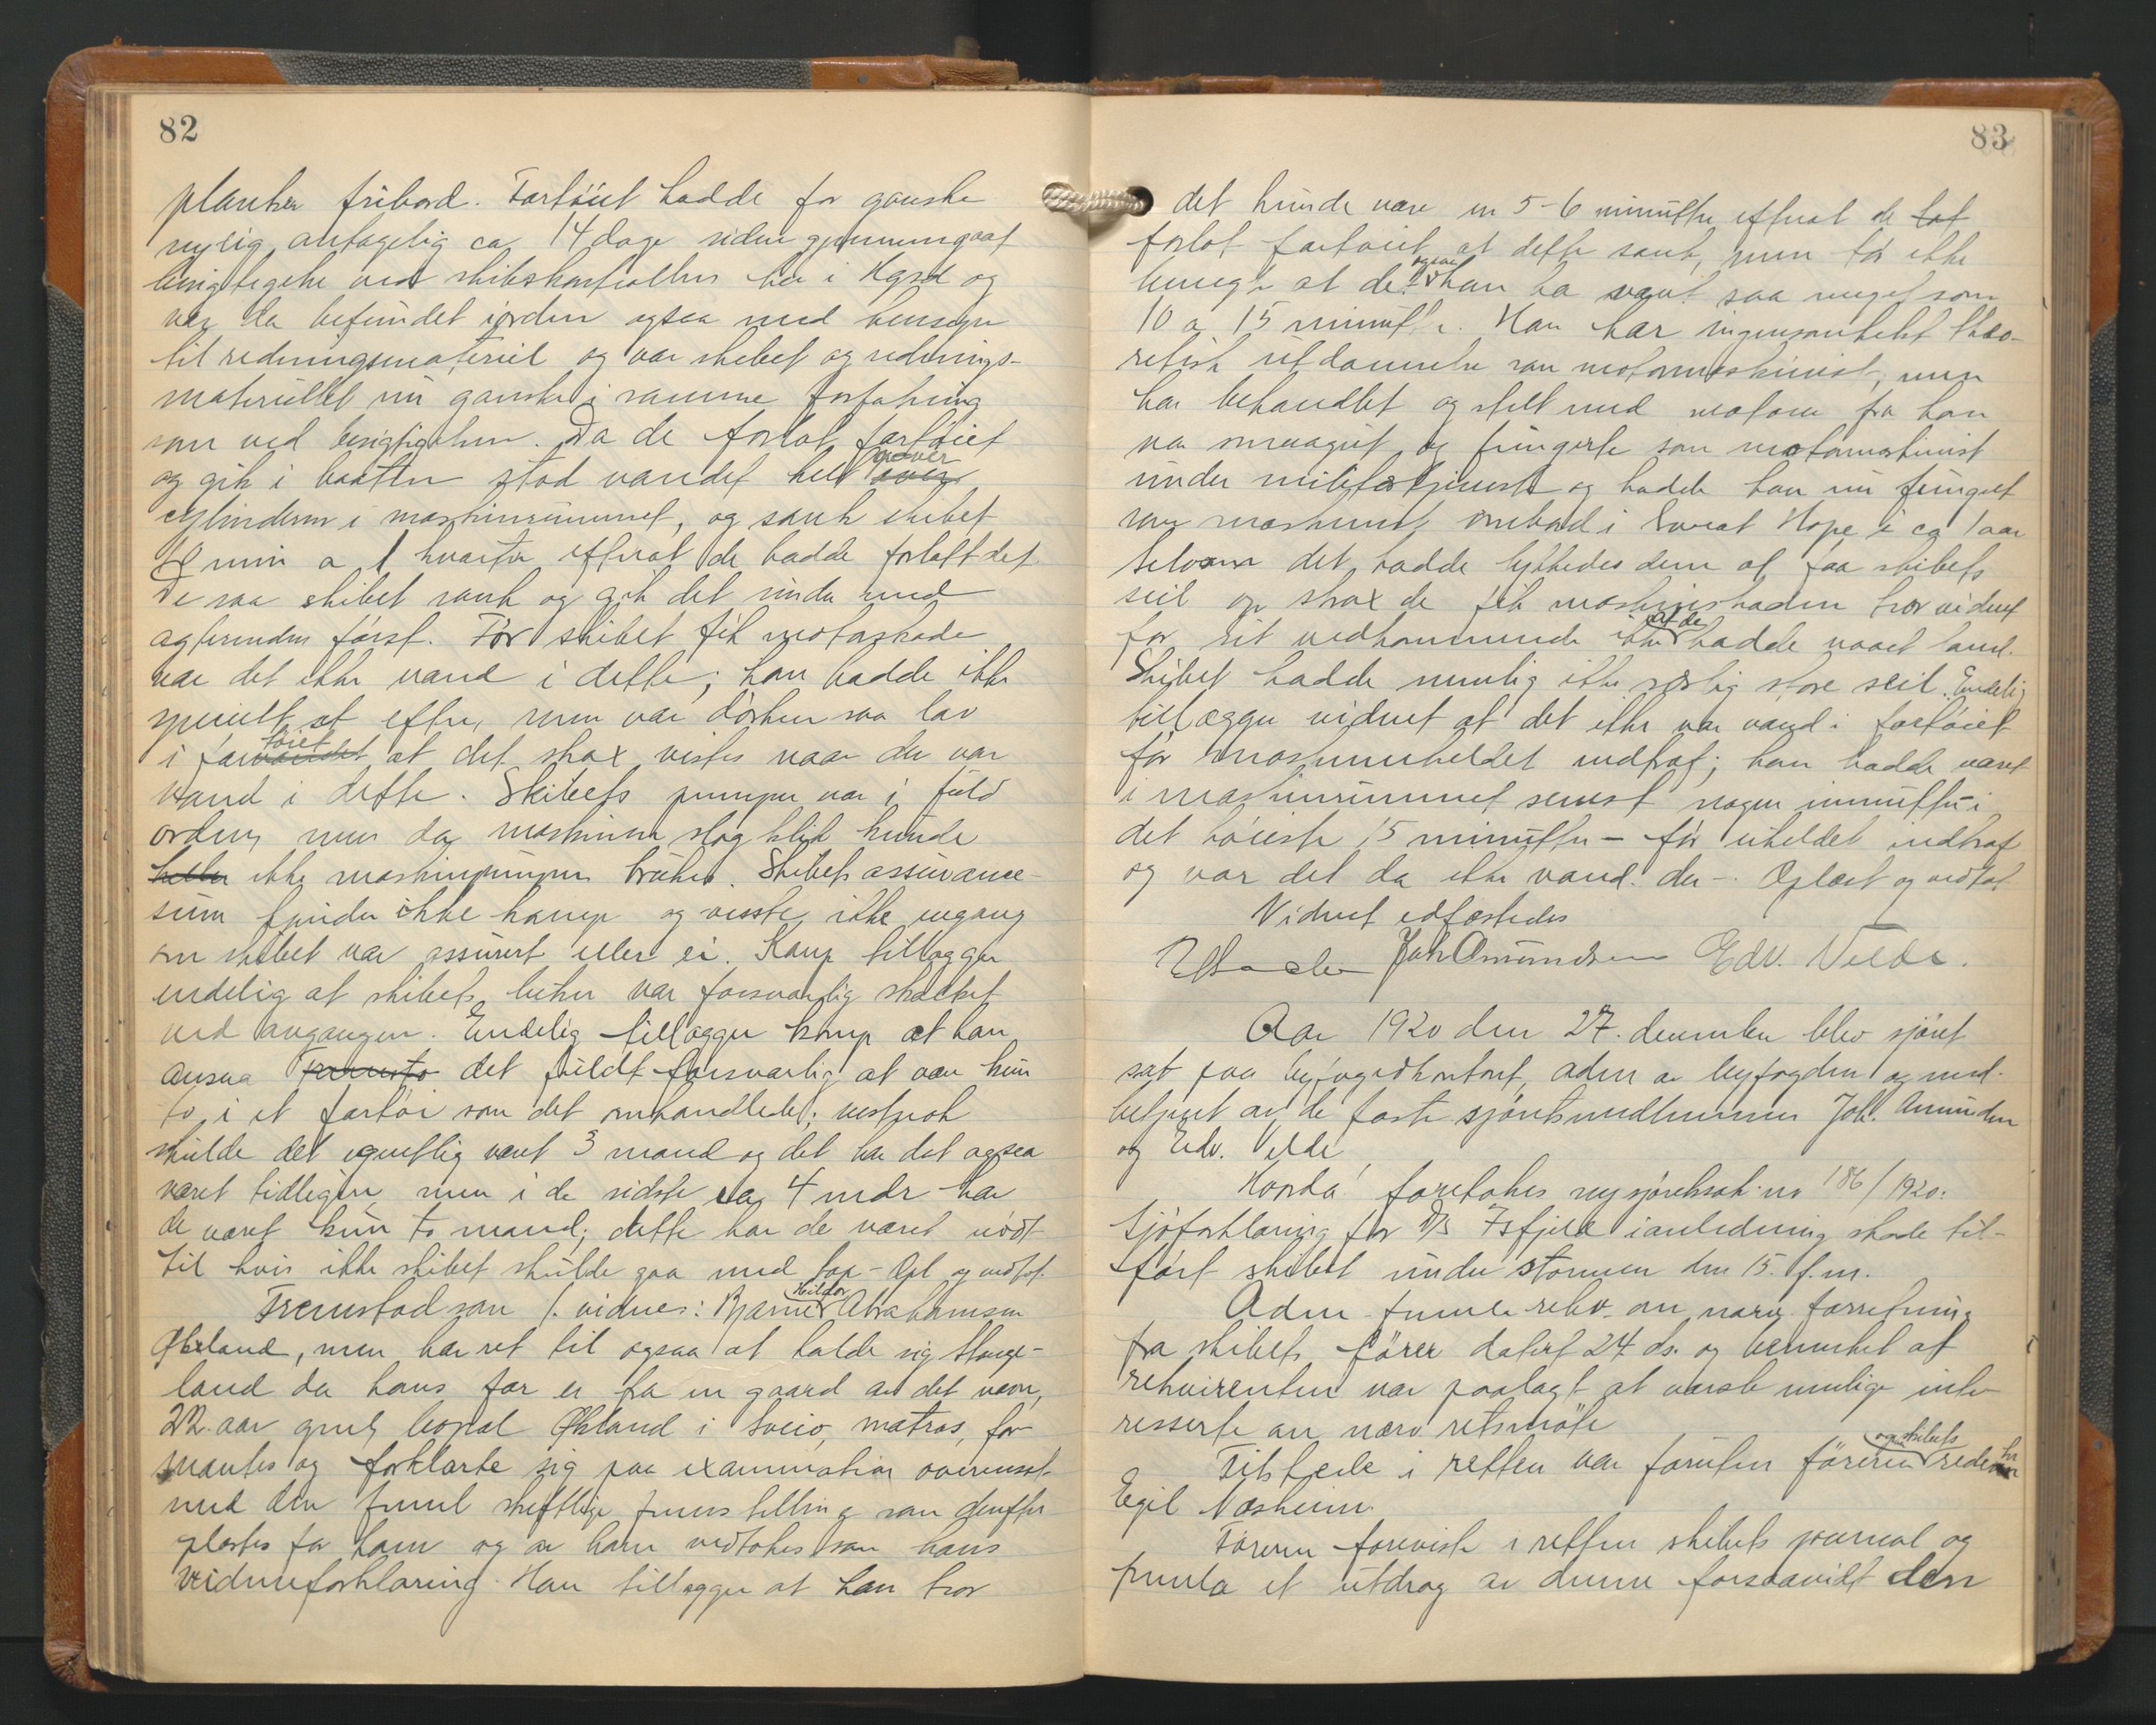 82
planker fribord. Fartøiet hadde for ganske
nylig, antagelig ca 14 dage siden gjennemgaat
besigtigelse ved skibskontrollen her i Hgsd og
var da befundet iorden ogsaa med hensyn
til redningsmateriel og var skibet og rednings-
materiellet nu ganske i samme forfatning
som ved besigtigelsen. Da de forlot fartøiet
og gik i baaten stod vandet helt over
cylinderen i maskinrummet, og sank skibet
10 min a 1 kvarter efterat de hadde forlatt det.
De saa skibet sank og gik det under med
agterenden først. Før skibet fik motorskade
var det ikke vand i dette; han hadde ikke
specielt set efter, men var dørken saa lav
i fartøiet at det strax vistes naar der var
vand i dette. Skibets pumper var i fuld
orden, men da maskinen slog klik kunde
heller ikke maskinpumpen brukes. Skibets assurance-
sum kjender ikke komp og visste ikke engang
om skibet var assurert eller ei. Komp tillægger
endelig at skibets luker var forsvarlig skalket
ved avgangen. Endelig tillægger komp at han
ansaa det fuldt forsvarlig at være kun
to i et fartøi som det omhandlede; nestnok
skulde det egentlig været 3 mand og det har det ogsaa
været tidligere men i de sidste ca 4 mdr har
de været kun to mand; dette har de været nødt
til hvis ikke skibet skulde gaa med tap – Opl og vedtat.
Fremstod som 1. vidne: Bjarne Abrahamsen
Økland, men har ret til ogsaa at kalde sig Stange-
land da hans far er fra en gaard av det navn,
22 aar gml, bopæl Økland i Sveio, matros, for
mantes og forklarte sig paa examination overensst.
med den freml skriftlige fremstilling som derefter
oplæstes for ham og av ham vedtokes som hans
vidneforklaring. Han tillægger at han tror
83
det kunde være en 5-6 minutter efterat de lot
forlot fartøiet at dette sank, men tør ikke
benegte at det ogsaa kan ha været saa meget som
10 a 15 minutter. Han har ingensomhelst theo-
retisk utdannelse som motormaskinist, men
har behandlet og stelt med motorer fra han
var smaagut og fungerte som motormaskinist
under militærtjeneste og hadde han nu fungert
som maskinist ombord i Hope i ca 1 aar
Selvom det hadde lykkedes dem at faa skibets
seil op strax de fik maskinskaden tror vidnet
for sit vedkommende ikke at de hadde naaet land.
Skibet hadde nemlig ikke særlig store seil. Endelig
tillægger vidnet at det ikke var vand i fartøiet
før maskinuheldet indtraf; han hadde været
i maskinrummet senest nogen minutter i
det høieste 15 minutter – før uheldet indtraf
og var det da ikke vand der –. Oplæst og vedtat
Vidnet edfæstedes
Joh Amundsen Edv. Velde.
Aar 1920 den 27. december blev sjøret
sat paa byfogedkontoret, adm av byfogden og med-
betjent av de faste sjøretsmedlemmer Joh. Amundsen
og Edv. Velde
Hvorda! foretokes ny sjøretssak no 186/1920:
Sjøforklaring for D/S Isfjeld i anledning skade til-
ført skibet under stormen den 15. f.m.
Adm fremla rekv. om nærv. forretning
fra skibets fører datert 24 ds. og bemerket at
rekvirenten var paalagt at varsle mulige inte-
resserte om nærv retsmøte
Tilstede i retten var foruten føreren og skibets reder hr
Egil Næsheim.
Føreren foreviste i retten skibets journal og
fremla et utdrag av denne forsaavidt den